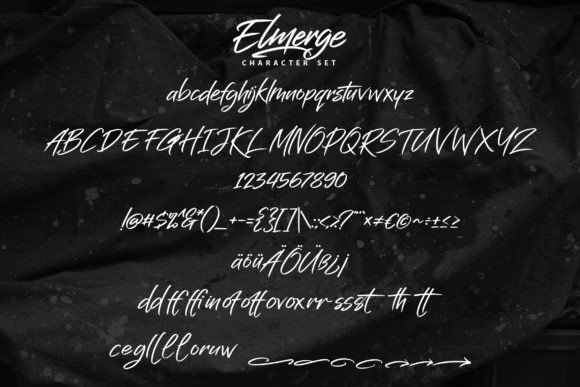 Elmerge
CHARACTER SET
abcdefghijklmnopqrstuvwxyz
ABCDEFGHIJKLMNOPQRSTUVWXYZ
1234567890
!@#$%^&*()_+-={}[]|\:;<,>.?
äöüÄÖÜß¿¡
dd ff ffi in of off ov ox rr ss st th tt
c e g l l l l o r u w